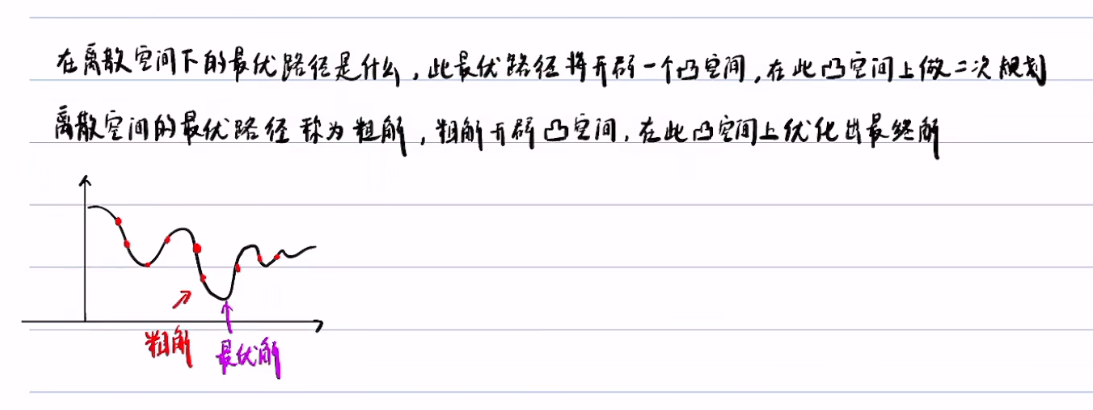 在离散空间下的最优路径是什么，此最优路径将开辟一个凸空间，在此凸空间上做二次规划
离散空间的最优路径称为粗解，粗解开辟凸空间，在此凸空间上优化出最终解
粗解
最优解